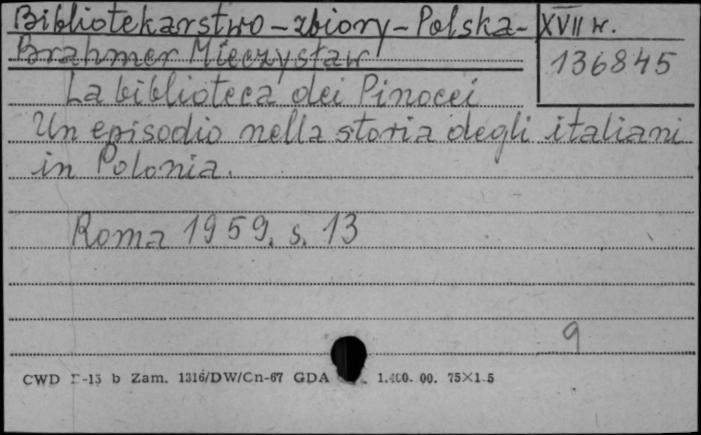 Bibliotekarstwo - zbiory - Polska - XVII w.
Brahmer Mieczysław
136845
La biblioteca dei Pinocei
Un episodio nella storia degli italiani
in Polonia.
Roma 1959. s. 13
9
CWD -15 b Zam. 1316/DW/Cn-67 GDA 1.400. 00. 75×1 5